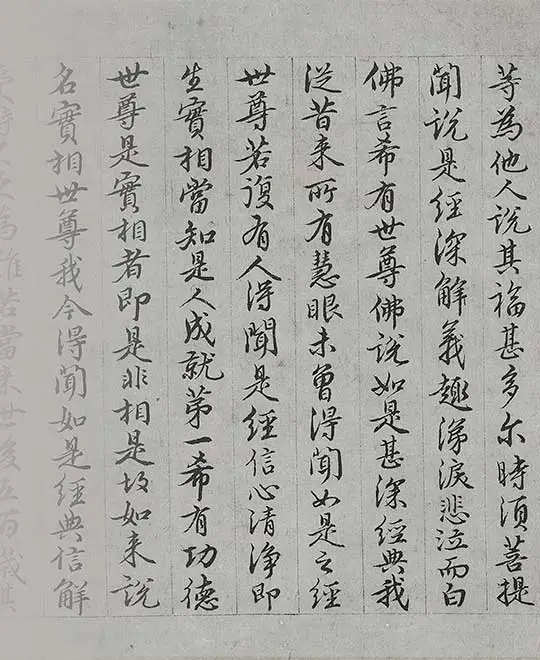 等為他人說其福甚多尒時須菩提
聞說是經深解義趣涕淚悲泣而白
佛言希有世尊佛說如是甚深經典我
従昔来所有慧眼未曾得聞如是之經
世尊若復有人得聞是經信心清淨即
生實相當知是人成就第一希有功德
世尊是實相者即是非相是故如来說
名實相世尊我今得聞如是經典信解
受持不足為難若當来世後五百歲其